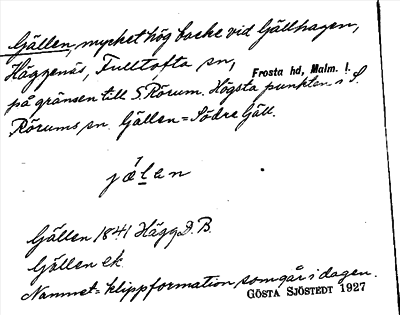 Gällen, mycket hög backe vid Gällhagen,
Häggenäs, Fulltofta sn, Frosta hd, Malm. l.
på gränsen till S. Rörum. Högsta punkten i S.
Rörums sn. Gällen = Södra Gäll.
jǽlen
Gällen 1841 Hägg D. B.
Gällen ek.
Namnet = klippformation som går i dagen.
GÖSTA SJÖSTEDT 1927